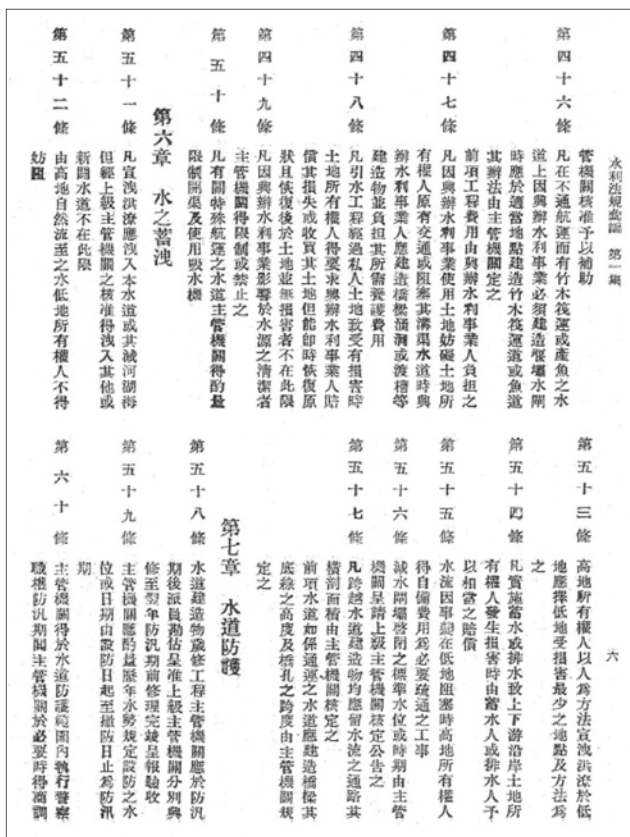 水利法規彙編 第一集
管機關核准予以補助
第四十六條 凡在不通航運而有竹木筏運或產魚之水
道上因興辦水利事業必須建造堰壩水閘
時應於適當地點建造竹木筏運道或魚道
其辦法由主管機關定之
前項工程費用由興辦水利事業人負擔之
第四十七條 凡因興辦水利事業使用土地妨礙土地所
有權人原有交通或阻塞其溝渠水道時興
辦水利事業人應建造橋樑涵洞或渡槽等
建造物並負擔其所需養護費用
第四十八條 凡引水工程經過私人土地致受有損害時
土地所有權人得要求興辦水利事業人賠
償其損失或收買其土地但能即時恢復原
狀且恢復後於土地並無損害者不在此限
第四十九條 凡因興辦水利事業影響於水源之清潔者
主管機關得限制或禁止之
第五十條 凡有關特殊航運之水道主管機關得酌量
限制開渠及使用吸水機
第六章 水之蓄洩
第五十一條 凡宣洩洪潦應洩入本水道或其減河湖海
但經上級主管機關之核准得洩入其他或
新闢水道不在此限
第五十二條 由高地自然流至之水低地所有權人不得
妨阻
六
第五十三條 高地所有權人以人為方法宣洩洪潦於低
地應擇低地受損害最少之地點及方法為
之
第五十四條 凡實施蓄水或排水致上下游沿岸土地所
有權人發生損害時由蓄水人或排水人予
以相當之賠償
第五十五條 水流因事變在低地阻塞時高地所有權人
得自備費用為必要疏通之工事
第五十六條 減水閘壩啓閉之標準水位或時期由主管
機關呈請上級主管機關核定公告之
第五十七條 凡跨越水道建造物均應留水流之通路其
橫剖面積由主管機關核定之
前項水道如係通運之水道應建造橋樑其
底線之高度及橋孔之跨度由主管機關規
定之
第七章 水道防護
第五十八條 水道建造物歲修工程主管機關應於防汛
期後派員勘估呈准上級主管機關分別興
修至翌年防汛期前修理完竣呈報驗收
第五十九條 主管機關應酌量歷年水勢規定設防之水
位或日期由設防日起至撤防日止為防汛
期
第六十條 主管機關得於水道防護範圍內執行警察
職權防汛期間主管機關於必要時得商調